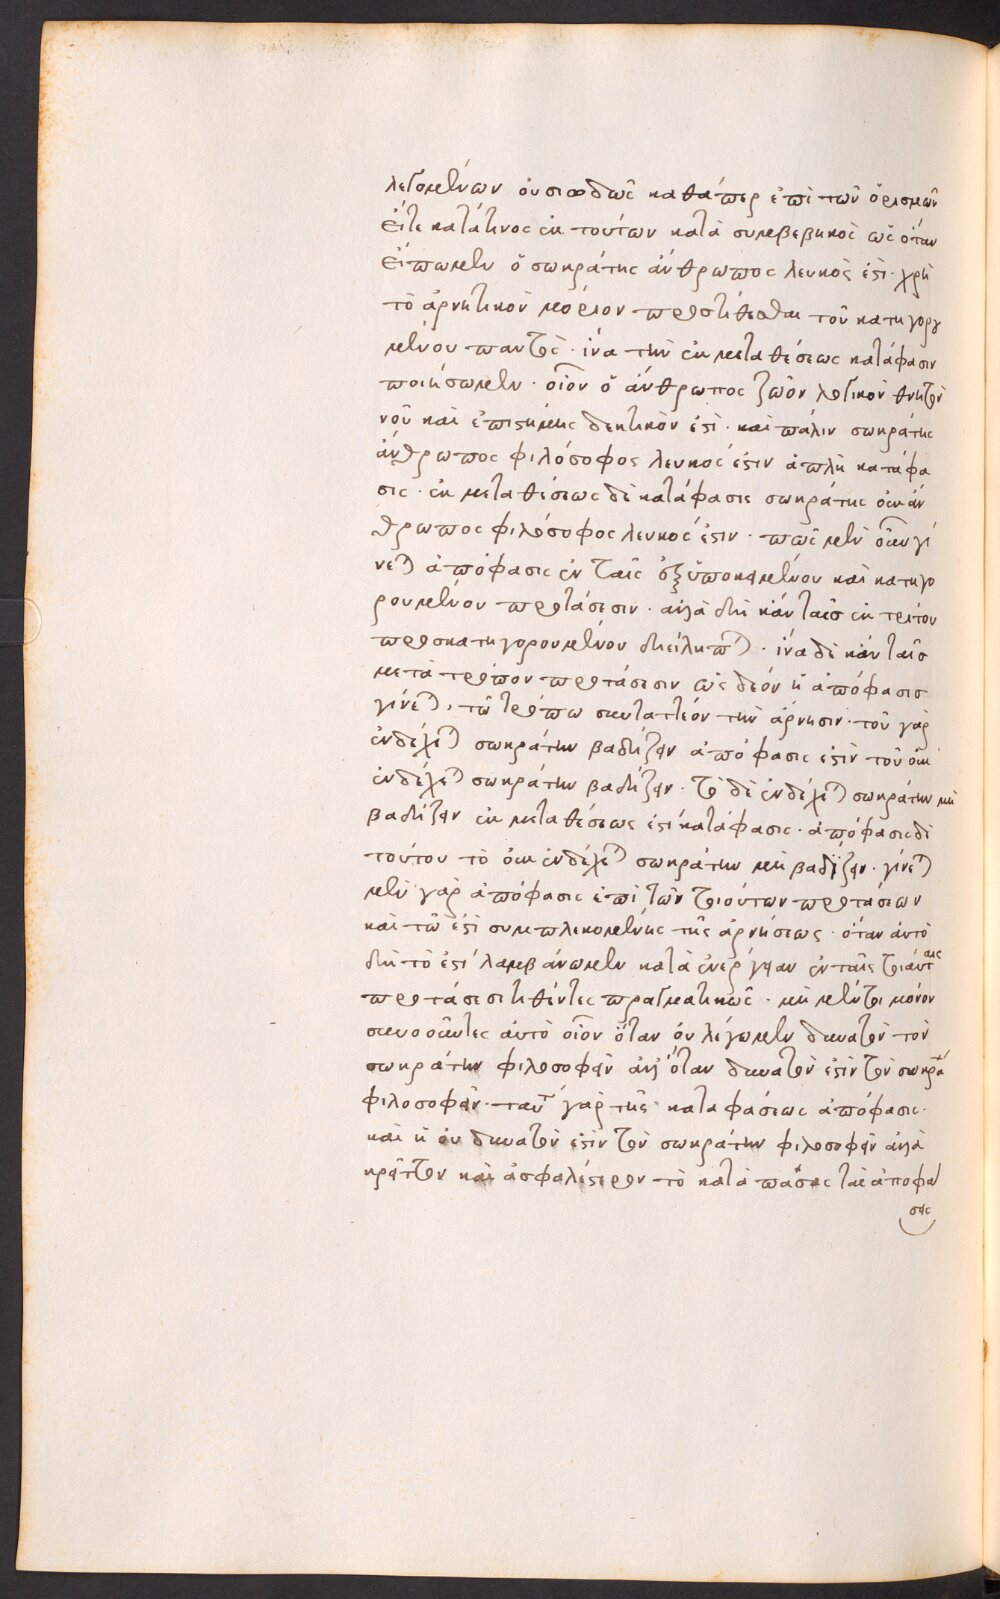 λεγομένων οὐσιωδῶς καθάπερ ἐπὶ τῶν ὁρισμῶν
εἴτε κατά τινος ἐκ τούτων κατὰ συμβεβηκὸς ὡς ὅταν
εἴπωμεν ὁ σωκράτης ἄνθρωπος λευκός ἐστι· χρὴ
τὸ ἀρνητικὸν μόριον προστίθεσθαι τοῦ κατηγορου
μένου παντὸς· ἵνα τὴν ἐκ μεταθέσεως κατάφασιν
ποιήσωμεν· οἷον ὁ ἄνθρωπος ζῶον λογικὸν θνητὸν
νοῦ καὶ ἐπιστήμης δεκτικὸν ἐστὶ· καὶ πάλιν σωκράτης
ἄνθρωπος φιλόσοφος λευκός ἐστιν ἁπλῆ κατάφα
σις· ἐκ μεταθέσεως δὲ κατάφασις σωκράτης οὐκ ἄν
θρωπος φιλόσοφος λευκός ἐστιν· πῶς μὲν οὖν γί
νεται ἀπόφασις ἐν ταῖς ἐξ ὑποκειμένου καὶ κατηγο
ρουμένου προτάσεσιν· ἀλλὰ δὴ κἀν ταῖς ἐκ τρίτου
προσκατηγορουμένου διείληπται· ἵνα δὲ κἀν ταῖς
μετὰ τρόπου προτάσεσιν ὡς δεόν ἡ ἀπόφασις
γίνεται, τῶ τρόπω συντακτέον τὴν ἄρνησιν· τοῦ γὰρ
ἐνδέχεται σωκράτην βαδίζειν ἀπόφασις ἐστὶν τοῦ οὐκ
ἐνδέχεται σωκράτην βαδίζειν· τὸ δὲ ἐνδέχεται σωκράτην μὴ
βαδίζειν ἐκ μεταθέσεως ἐστι κατάφασις· ἀπόφασις δὲ
τούτου τὸ οὐκ ἐνδέχεται σωκράτην μὴ βαδίζειν· γίνεται
μὲν γὰρ ἀπόφασις ἐπὶ τῶν τοιούτων προτάσεων
καὶ τῶ ἐστὶ συμπλεκομένης τῆς ἀρνήσεως· ὅταν αὐτὸ
δὴ τὸ ἐστὶ λαμβάνωμεν κατὰ ἐνέργειαν ἐν ταῖς τοιαύταις
προτάσεσι τιθέντες πραγματικῶς· μὴ μέντοι μόνον
συνοοῦντες αὐτὸ οἷον ὅταν οὐ λέγωμεν δυνατὸν τὸν
σωκράτην φιλοσοφεῖν ἀλλ' ὅταν δυνατὸν ἐστὶν τὸν σωκρά
φιλοσοφεῖν· ταύτ γὰρ τῆς καταφάσεως ἀπόφασις·
καὶ ἡ οὐ δυνατὸν ἐστὶν τὸν σωκράτην φιλοσοφεῖν ἀλλὰ
κρεῖττον καὶ ἀσφαλέστερον τὸ κατὰ πάσας τὰς ἀποφά
σεις